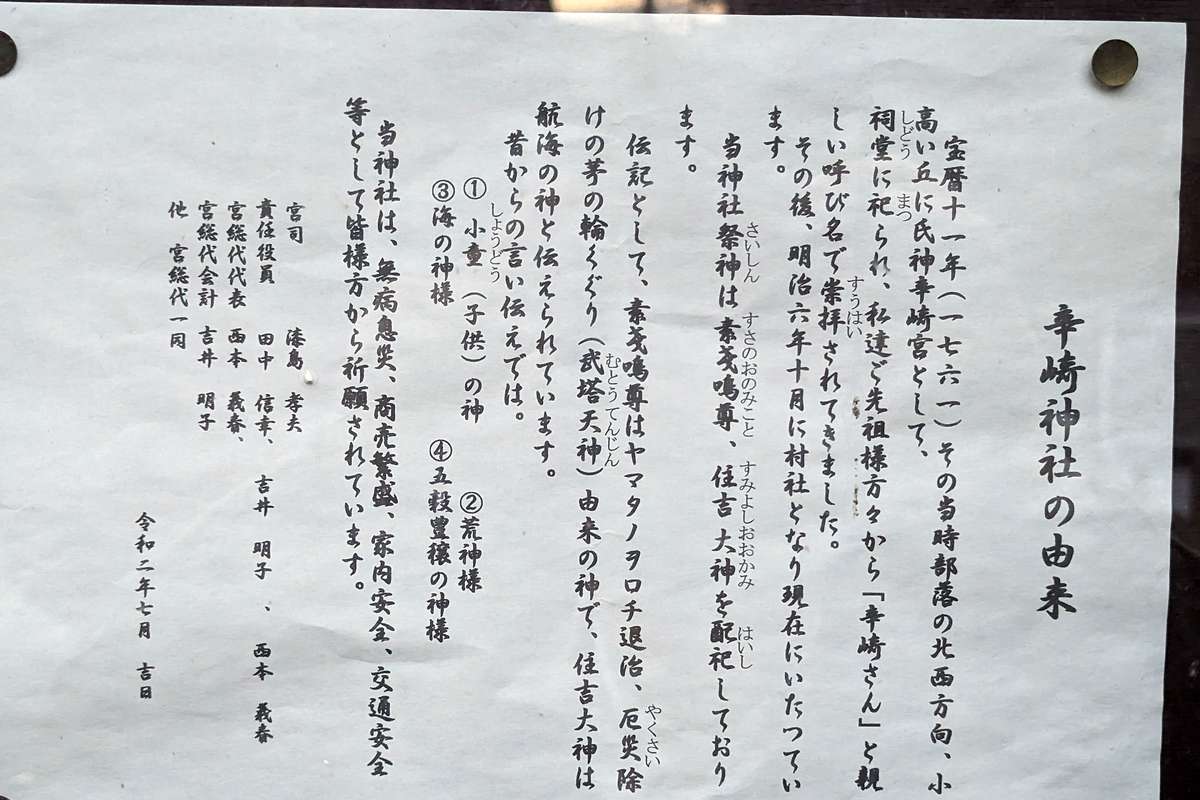 辛崎神社の由来
宝暦十一年(一七六一)その当時部落の北西方向、小
高い丘に氏神辛崎宮として、
祠堂に祀られ、私達ご先祖様方々から「辛崎さん」と親
しどう
まつ
しい呼び名で崇拝されてきました。
すうはい
その後、明治六年十月に村社となり現在にいたつてい
ます。
当神社祭神は素戔鳴尊、住吉大神を配祀しており
さいしん
すさのおのみこと
すみよしおおかみ
はいし
ます。
伝記として、素戔鳴尊はヤマタノヲロチ退治、厄災除
やくさい
けの茅の輪くぐり(武塔天神)由来の神で、住吉大神は
むとうてんじん
航海の神と伝えられています。
昔からの言い伝えでは。
①小童(子供)の神 ②荒神様
しょうどう
③海の神様 ④五穀豊穣の神様
当神社は、無病息災、商売繁盛、家内安全、交通安全
等として皆様方から祈願されています。
宮司 漆島 孝夫
責任役員 田中 信幸、吉井 明子、西本 義春
宮総代代表 西本 義春、
宮総代会計 吉井 明子
他 宮総代一同
令和二年七月 吉日